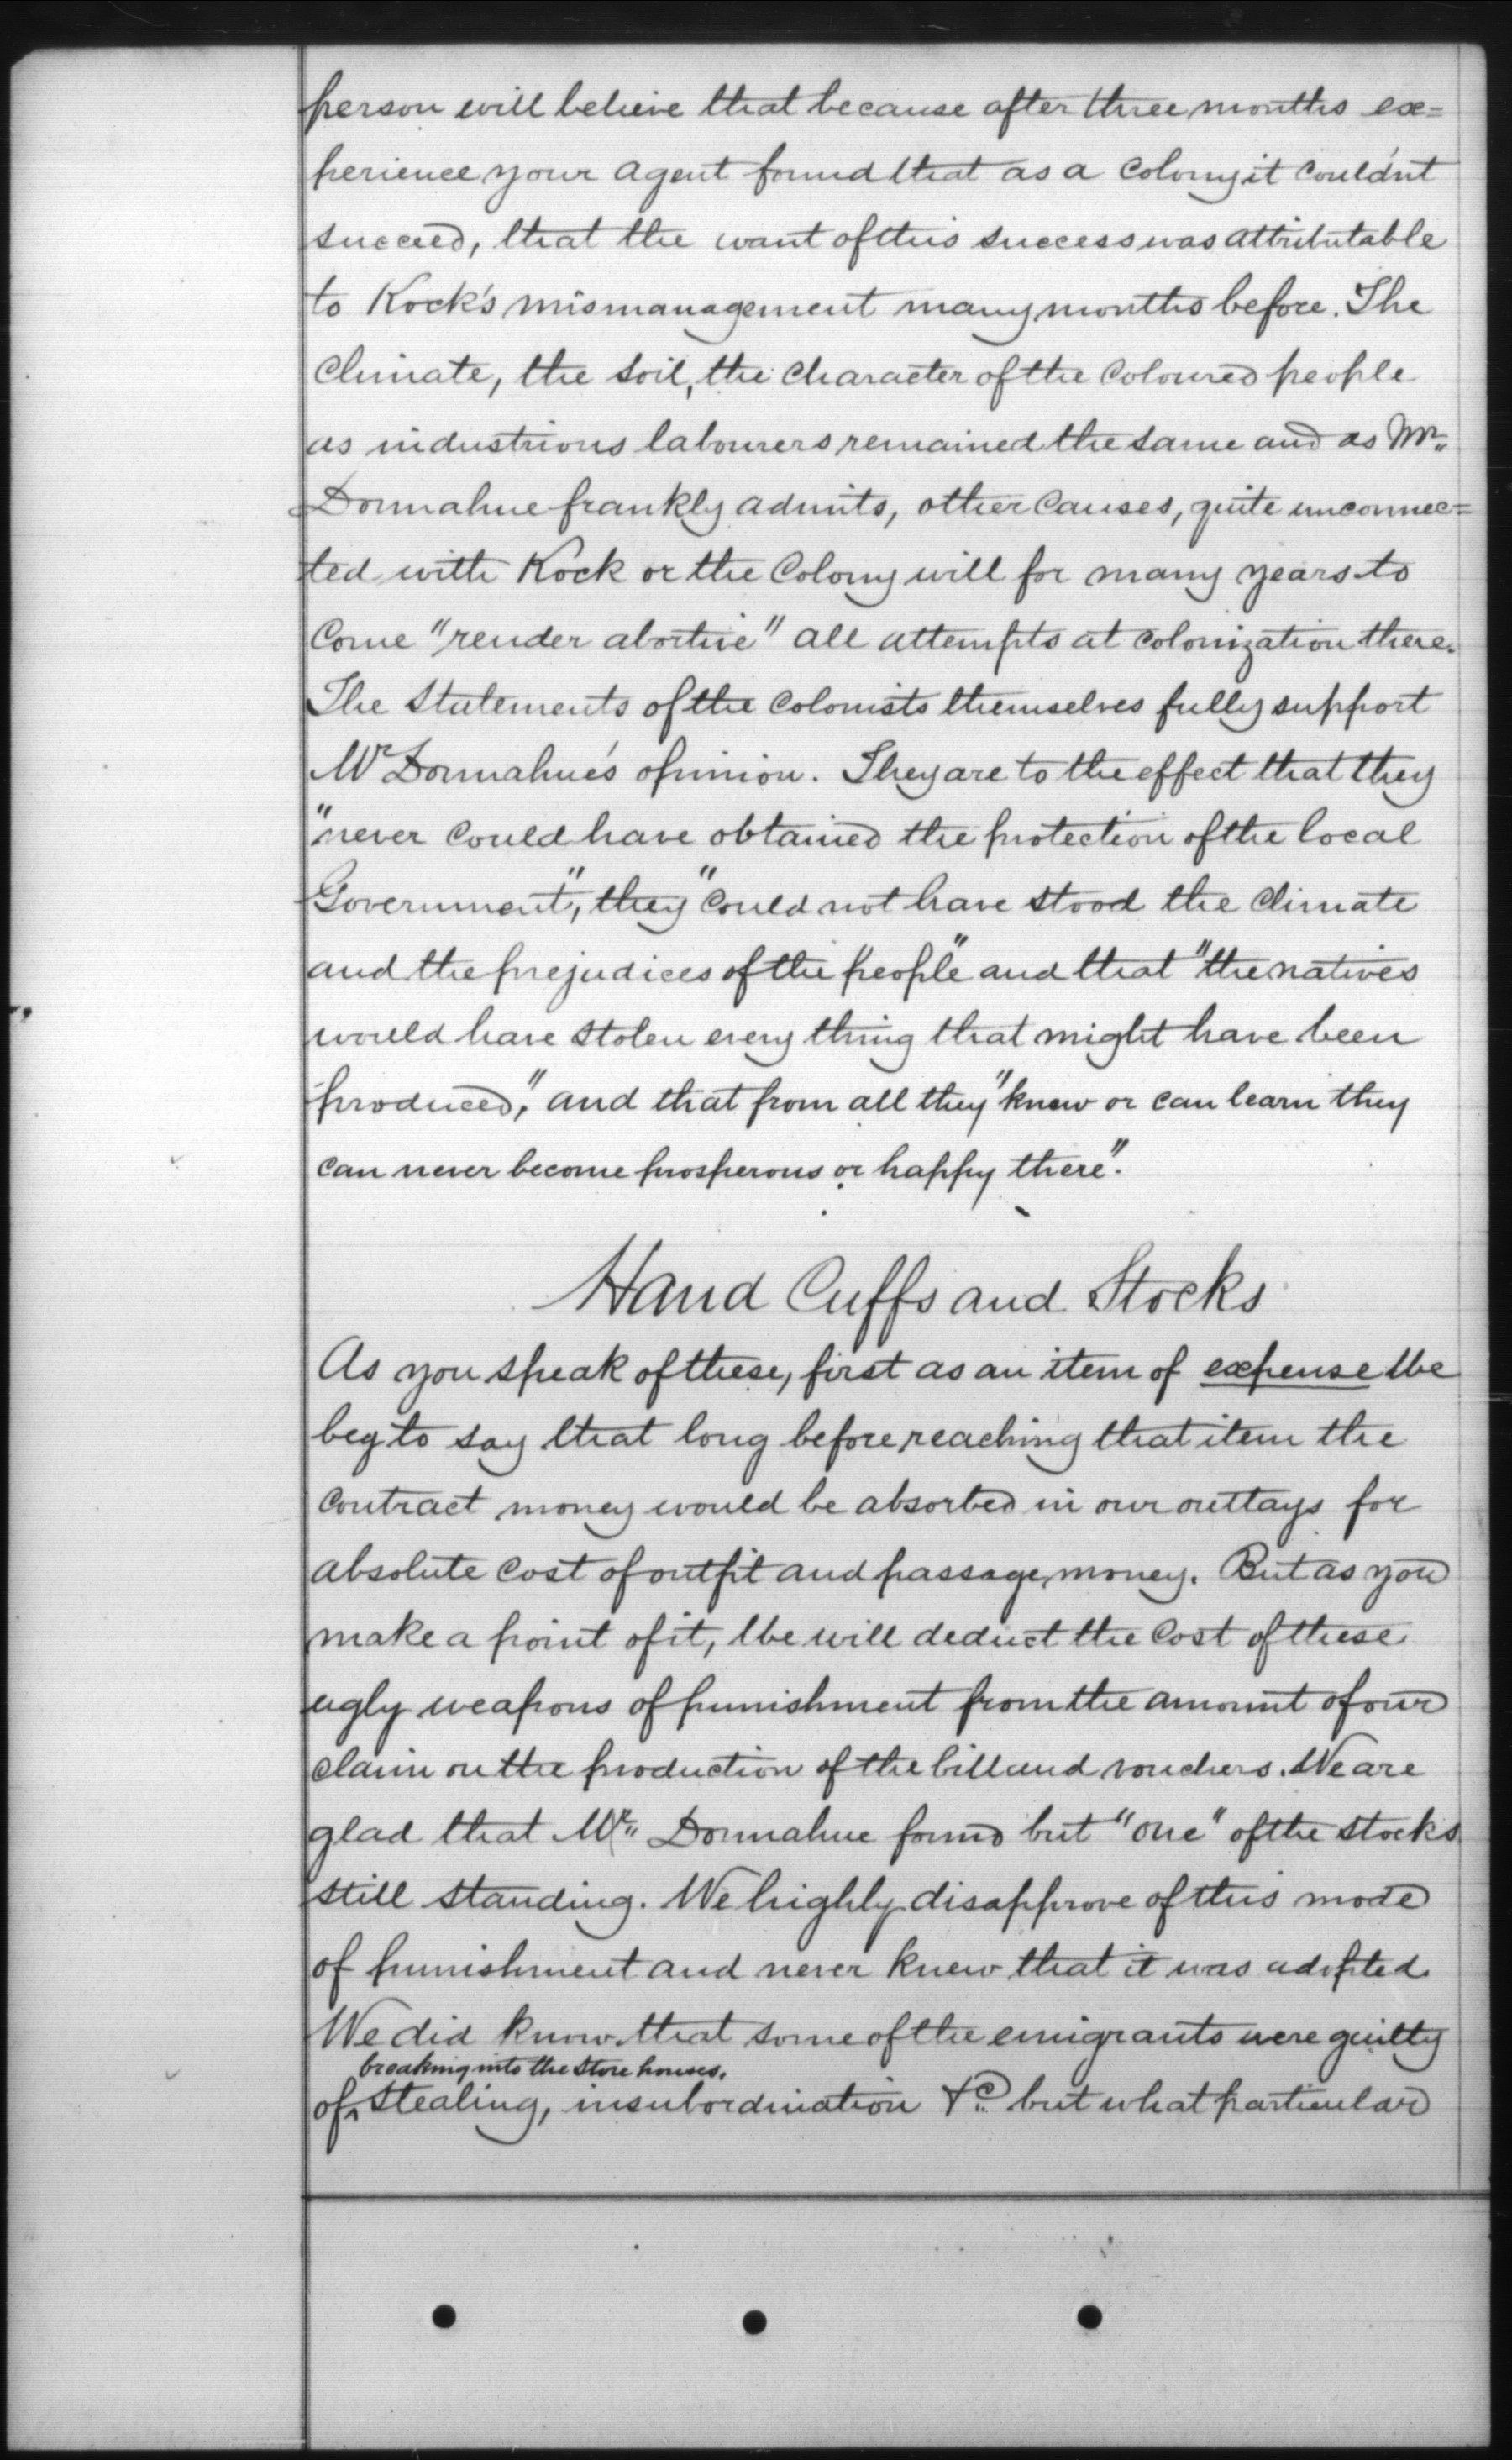 person will believe that because after three months ex=
perience your agent found that as a Colony it could'nt
succeed, that the want of this success was attributable
to Kock's mismanagement many months before. The
Climate, the soil, the Character of the Coloured people
as industrious labourers remained the same and as Mr.
Donnahue frankly admits, other Causes, quite unconnec=
ted with Kock or the Colony will for many years to
Come "render abortive" all attempts at Colonization there.
The Statements of the Colonists themselves fully support
Mr Donnahue's opinion. They are to the effect that they
"never Could have obtained the protection of the local
Government", they "Could not have stood the Climate
and the prejudices of the people" and that "the natives
would have stolen every thing that might have been
produced," and that from all they "know or can learn they
can never become prosperous or happy there".
Hand Cuffs and Stocks
As you speak of these, first as an item of expense We
beg to say that long before reaching that item the
Contract money would be absorbed in our outlays for
absolute Cost of outfit and passage money. But as you
make a point of it, We will deduct the Cost of these
ugly weapons of punishment from the amount of our
claim on the production of the bill and vouchers. We are
glad that Mr. Donnahue found but "one" of the stocks
still standing. We highly disapprove of this mode
of punishment and never knew that it was adopted.
We did know that some of the emigrants were guilty
breaking into the store houses,
of stealing, insubordination &c. but what particular